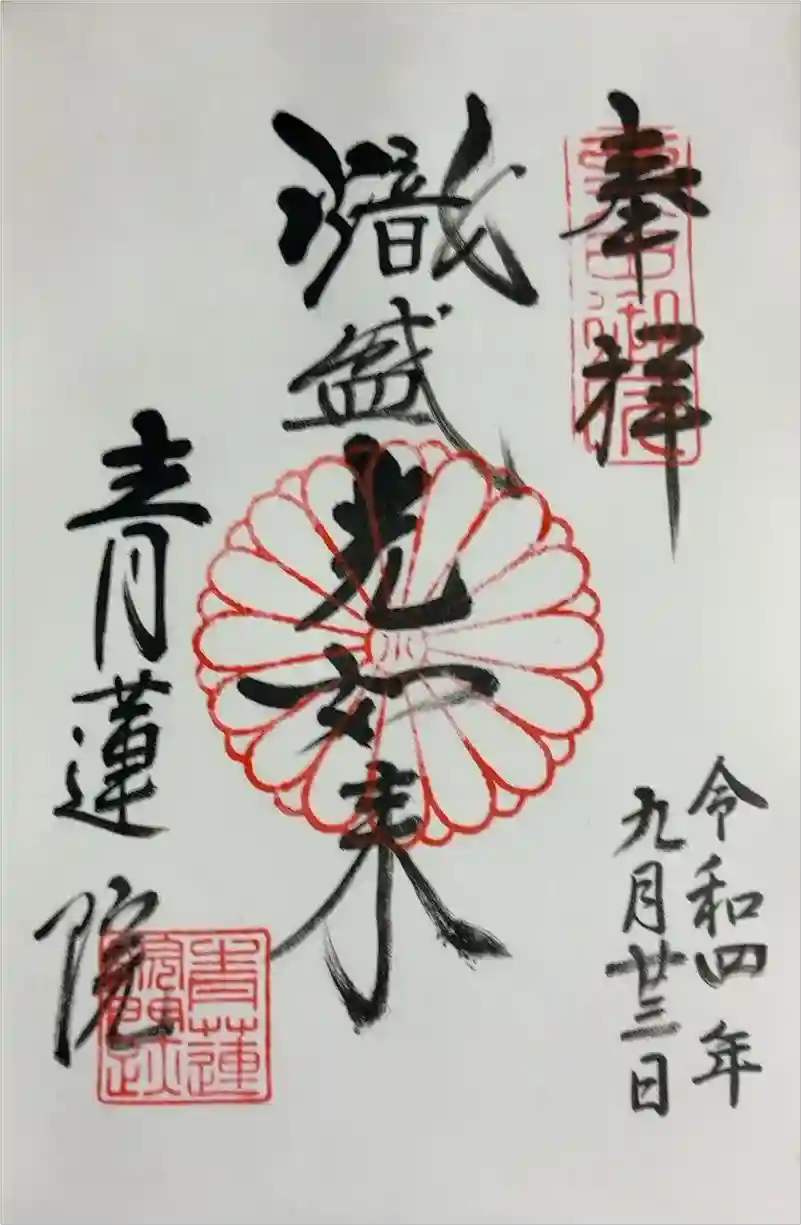 奉拝
令和四年
九月廿三日
熾盛光如来
青蓮院
青蓮院門跡